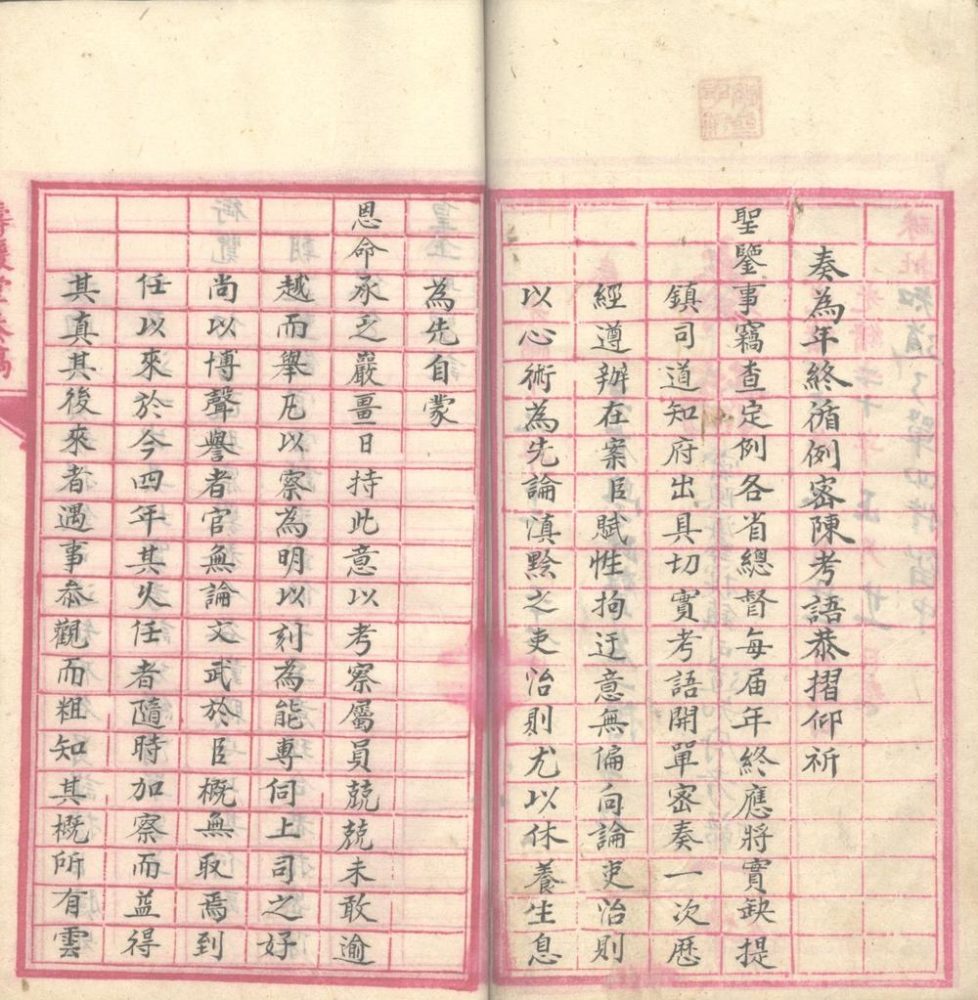 奏為年終循例密陳考語恭摺仰祈
聖鑒事竊查定例各省總督每届年終應將實缺提
鎮司道知府出具切實考語開單密奏一次歷
經遵辦在案臣賦性拘迂意無偏向論吏治則
以心術為先論滇黔之吏治則尤以休養生息
為先自蒙
恩命承乏嚴畺日持此意以考察屬員兢兢未敢逾
越而舉凡以察為明以刻為能專伺上司之好
尚以博聲譽者官無論文武於臣概無取焉到
任以來於今四年其久任者隨時加察而益得
其真其後來者遇事叅觀而粗知其概所有雲